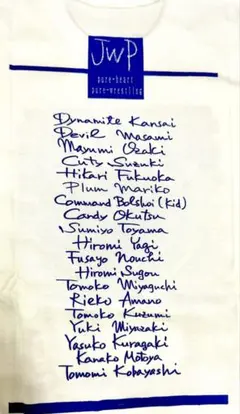 JWP
pure-heart
pure-wrestling
Dynamite Kansai
Devil Masami
Mayumi Ozaki
Cuty Suzuki
Hikari Fukuoka
Plum Mariko
Command Bolshoi (Kid)
Candy Okutsu
Sumiyo Toyama
Hiromi Yagi
Fusayo Nouchi
Hiromi Sugou
Tomoko Miyaguchi
Rieko Amano
Tomoko Kuzumi
Yuki Miyazaki
Yasuko Kuragaki
Kanako Motoya
Tomomi Kobayashi